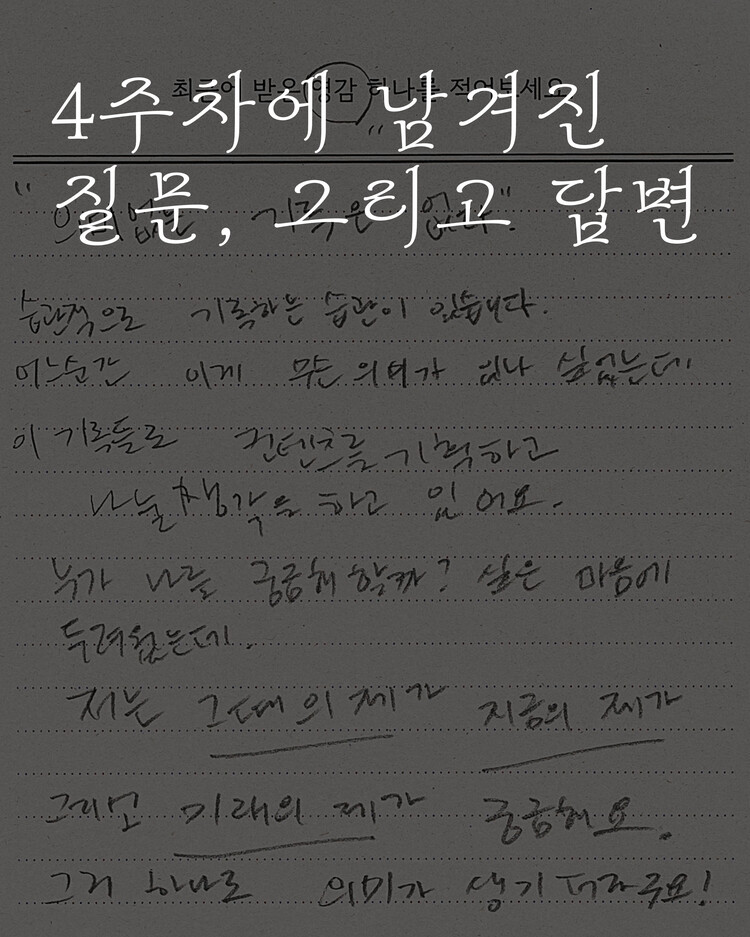 최근에 받은 영감 하나를 적어보세요
4주차에 남겨진
질문, 그리고 답변
" 의미없는 기록은 없다".
습관적으로 기록하는 습관이 있습니다.
어느순간 이게 무슨 의미가 있나 싶었는데
이 기록들로 컨텐츠를 기획하고
나눌 생각을 하고 있어요.
누가 나를 궁금해 할까? 싶은 마음에
두려웠는데.
저는 그때의 제가 지금의 제가
그리고 미래의 제가 궁금해요.
그거 하나로 의미가 생기더라구요!